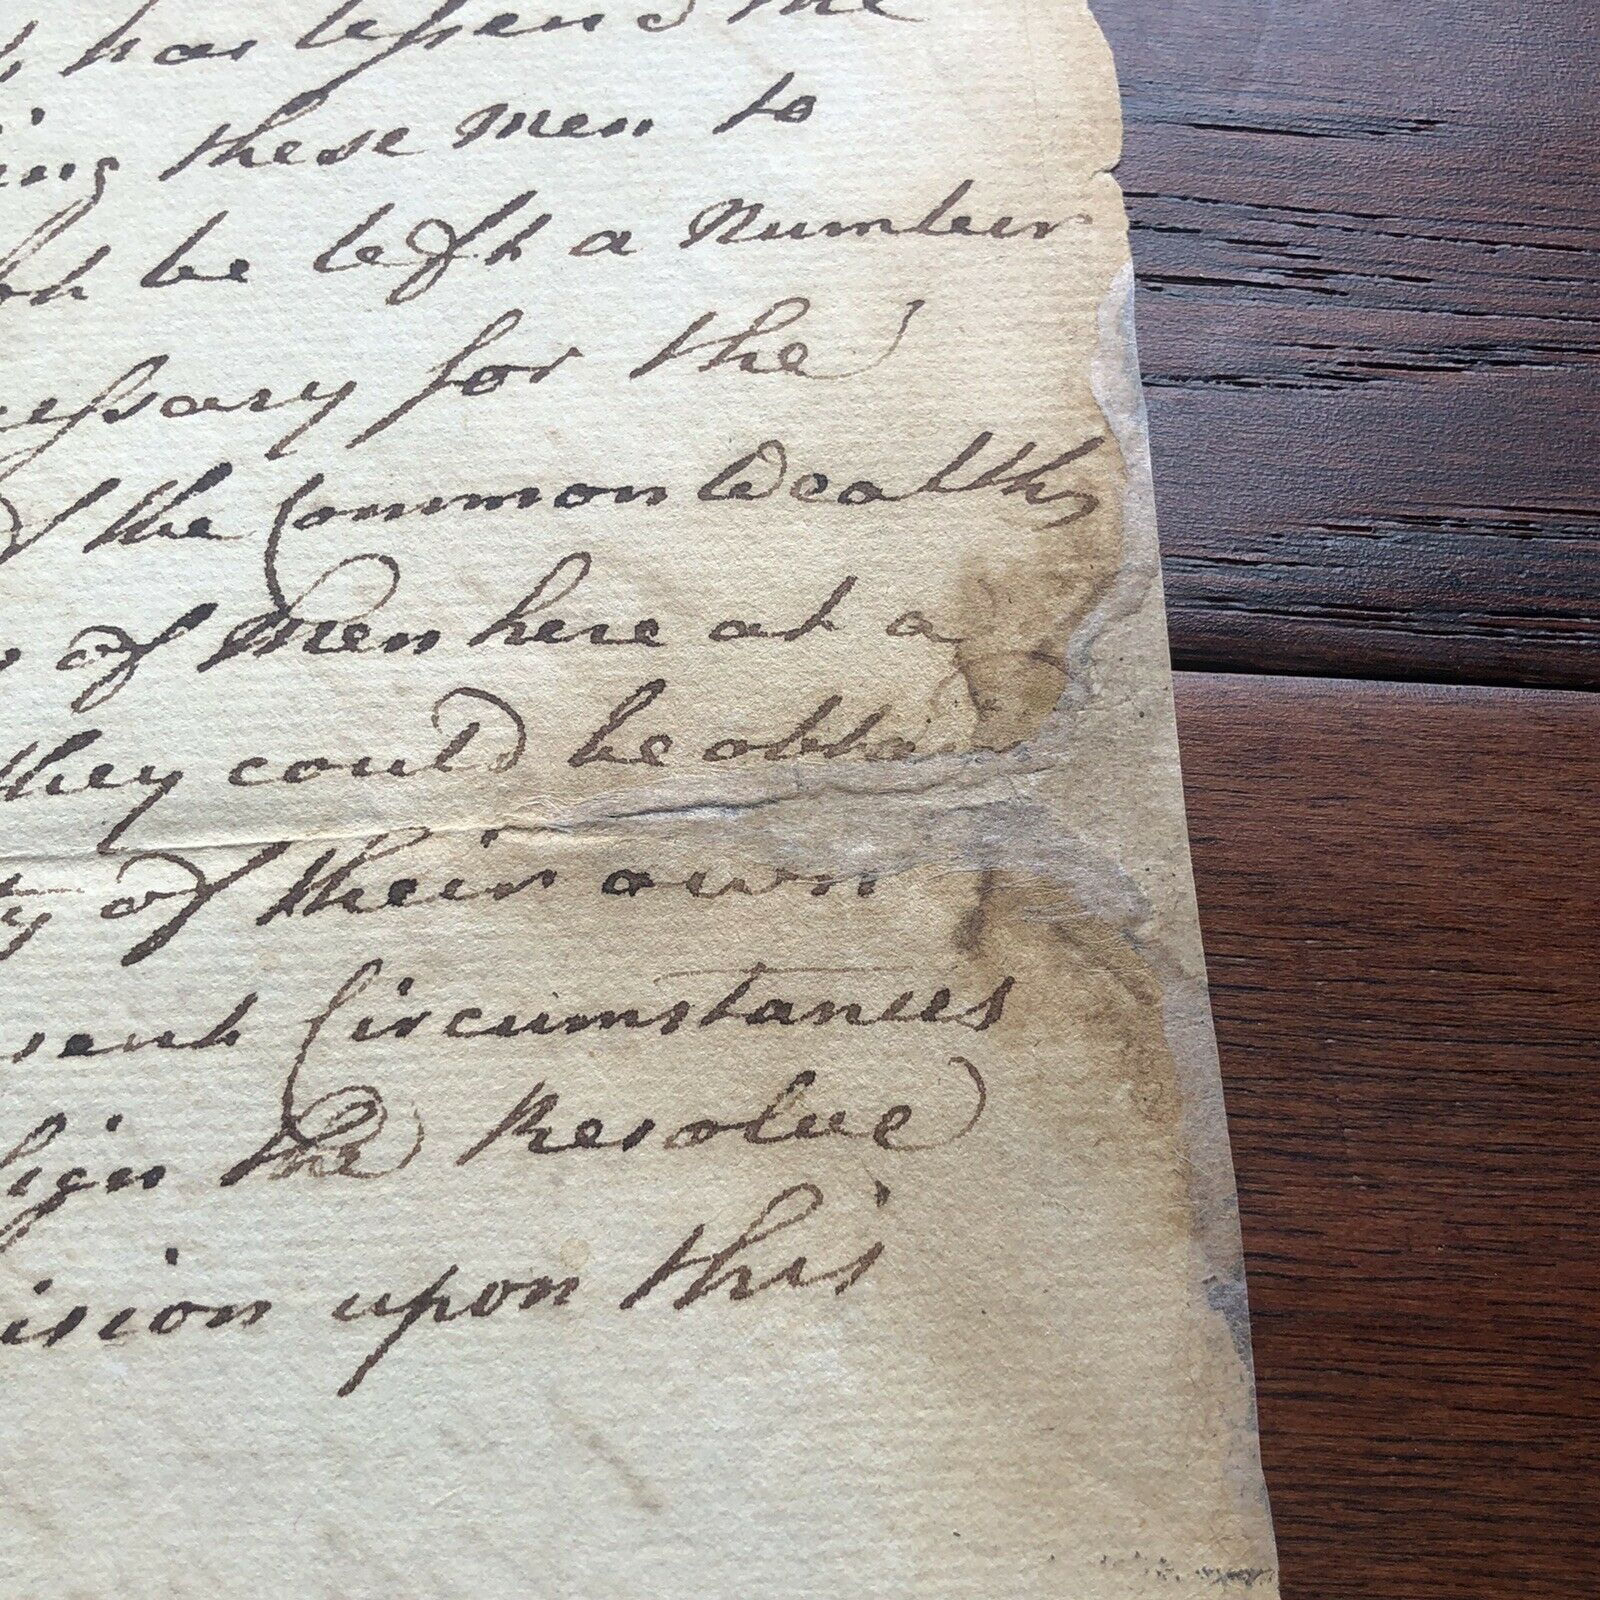 has lessend the
ing these Men to
be left a Number
cessary for the
of the Common Wealth,
of Men here at a
they could be obtain
ty of their own
sent Circumstances
sign the Resolve
ision upon this